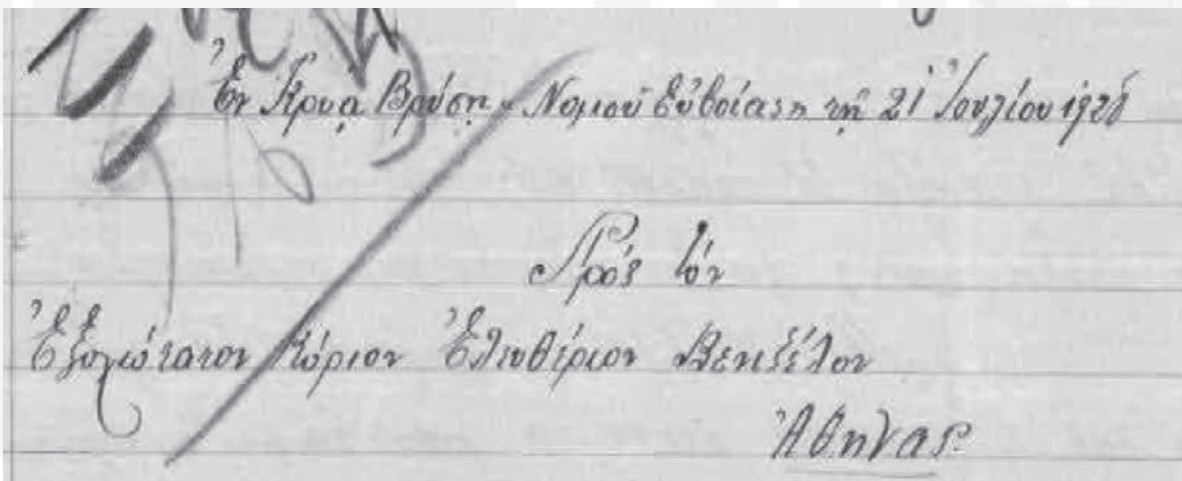 Ἐν Κρυᾷ Βρύσῃ Νομοῦ Εὐβοίας τῇ 21 Ἰουλίου 1928
Πρός τόν
Ἐξοχώτατον Κύριον Ἐλευθέριον Βενιζέλον
Ἀθήνας